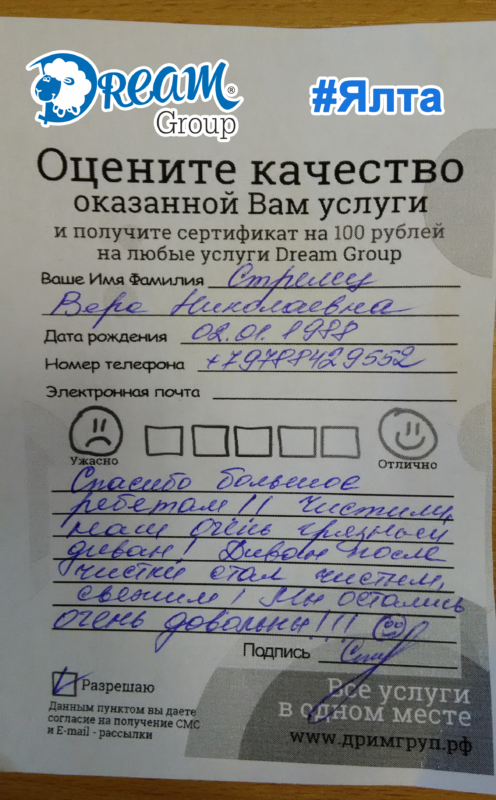 DREAM®
Group
#Ялта
Оцените качество
оказанной Вам услуги
и получите сертификат на 100 рублей
на любые услуги Dream Group
Ваше Имя Фамилия Стрелец
Вера Николаевна
Дата рождения 02.01.1988
Номер телефона +79788429552
Электронная почта
Ужасно
Отлично
Спасибо большое
ребетам!! Чистили
наш очень грязный
диван! Диван после
чистки стал чистым,
свежим! Мы остались
очень довольны!!!
Подпись
Разрешаю
Данным пунктом вы даете
согласие на получение СМС
и E-mail - рассылки
Все услуги
в одном месте
www.дримгруп.рф